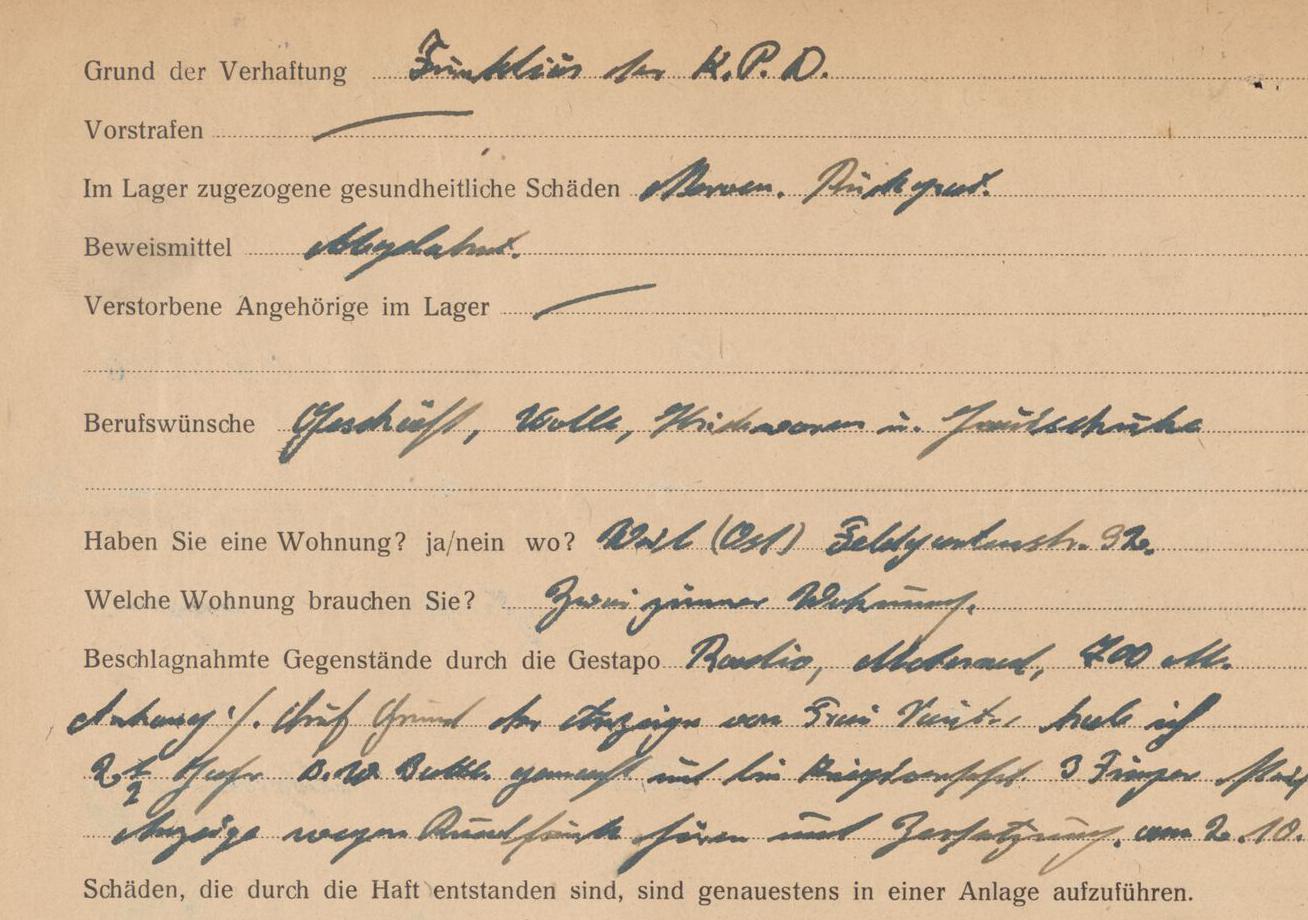 Grund der Verhaftung Funktionär der K.P.D.
Vorstrafen
Im Lager zugezogene gesundheitliche Schäden Nerven. Rückgrat.
Beweismittel
Verstorbene Angehörige im Lager
Berufswünsche Geschäft, Wolle, waren u. Hausschuhe
Haben Sie eine Wohnung? ja/nein wo? Weil (Ost) Feldgartenstr. 92.
Welche Wohnung brauchen Sie? Zwei zimmer Wohnung.
Beschlagnahmte Gegenstände durch die Gestapo Radio, Motorrad, 700 M.
Anhang ·/. Auf Grund der Anzeige von Frau habe ich
2 1/2 Jahr gemacht und bin 3 Finger
Anzeige wegen Rundfunk hören und Zersetzung. am 2.10.
Schäden, die durch die Haft entstanden sind, sind genauestens in einer Anlage aufzuführen.